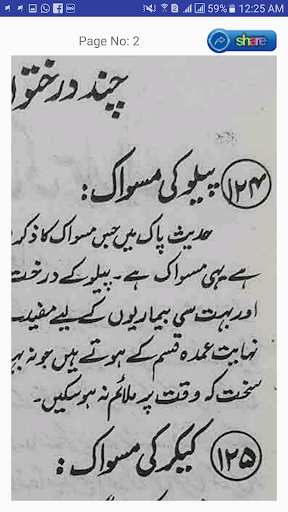 59% 12:25 AM
Page No: 2
share
چند درختو
۱۲۴ پیلو کی مسواک :
حدیث پاک میں جس مسواک کا ذکر
ہے یہی مسواک ہے۔ پیلو کے درخت
اور بہت سی بیماریوں کے لیے مفید
نہایت عمدہ قسم کے ہوتے ہیں جو نہ
سخت کہ وقت پر ملائم نہ ہو سکیں۔
۱۲۵ کیکر کی مسواک :